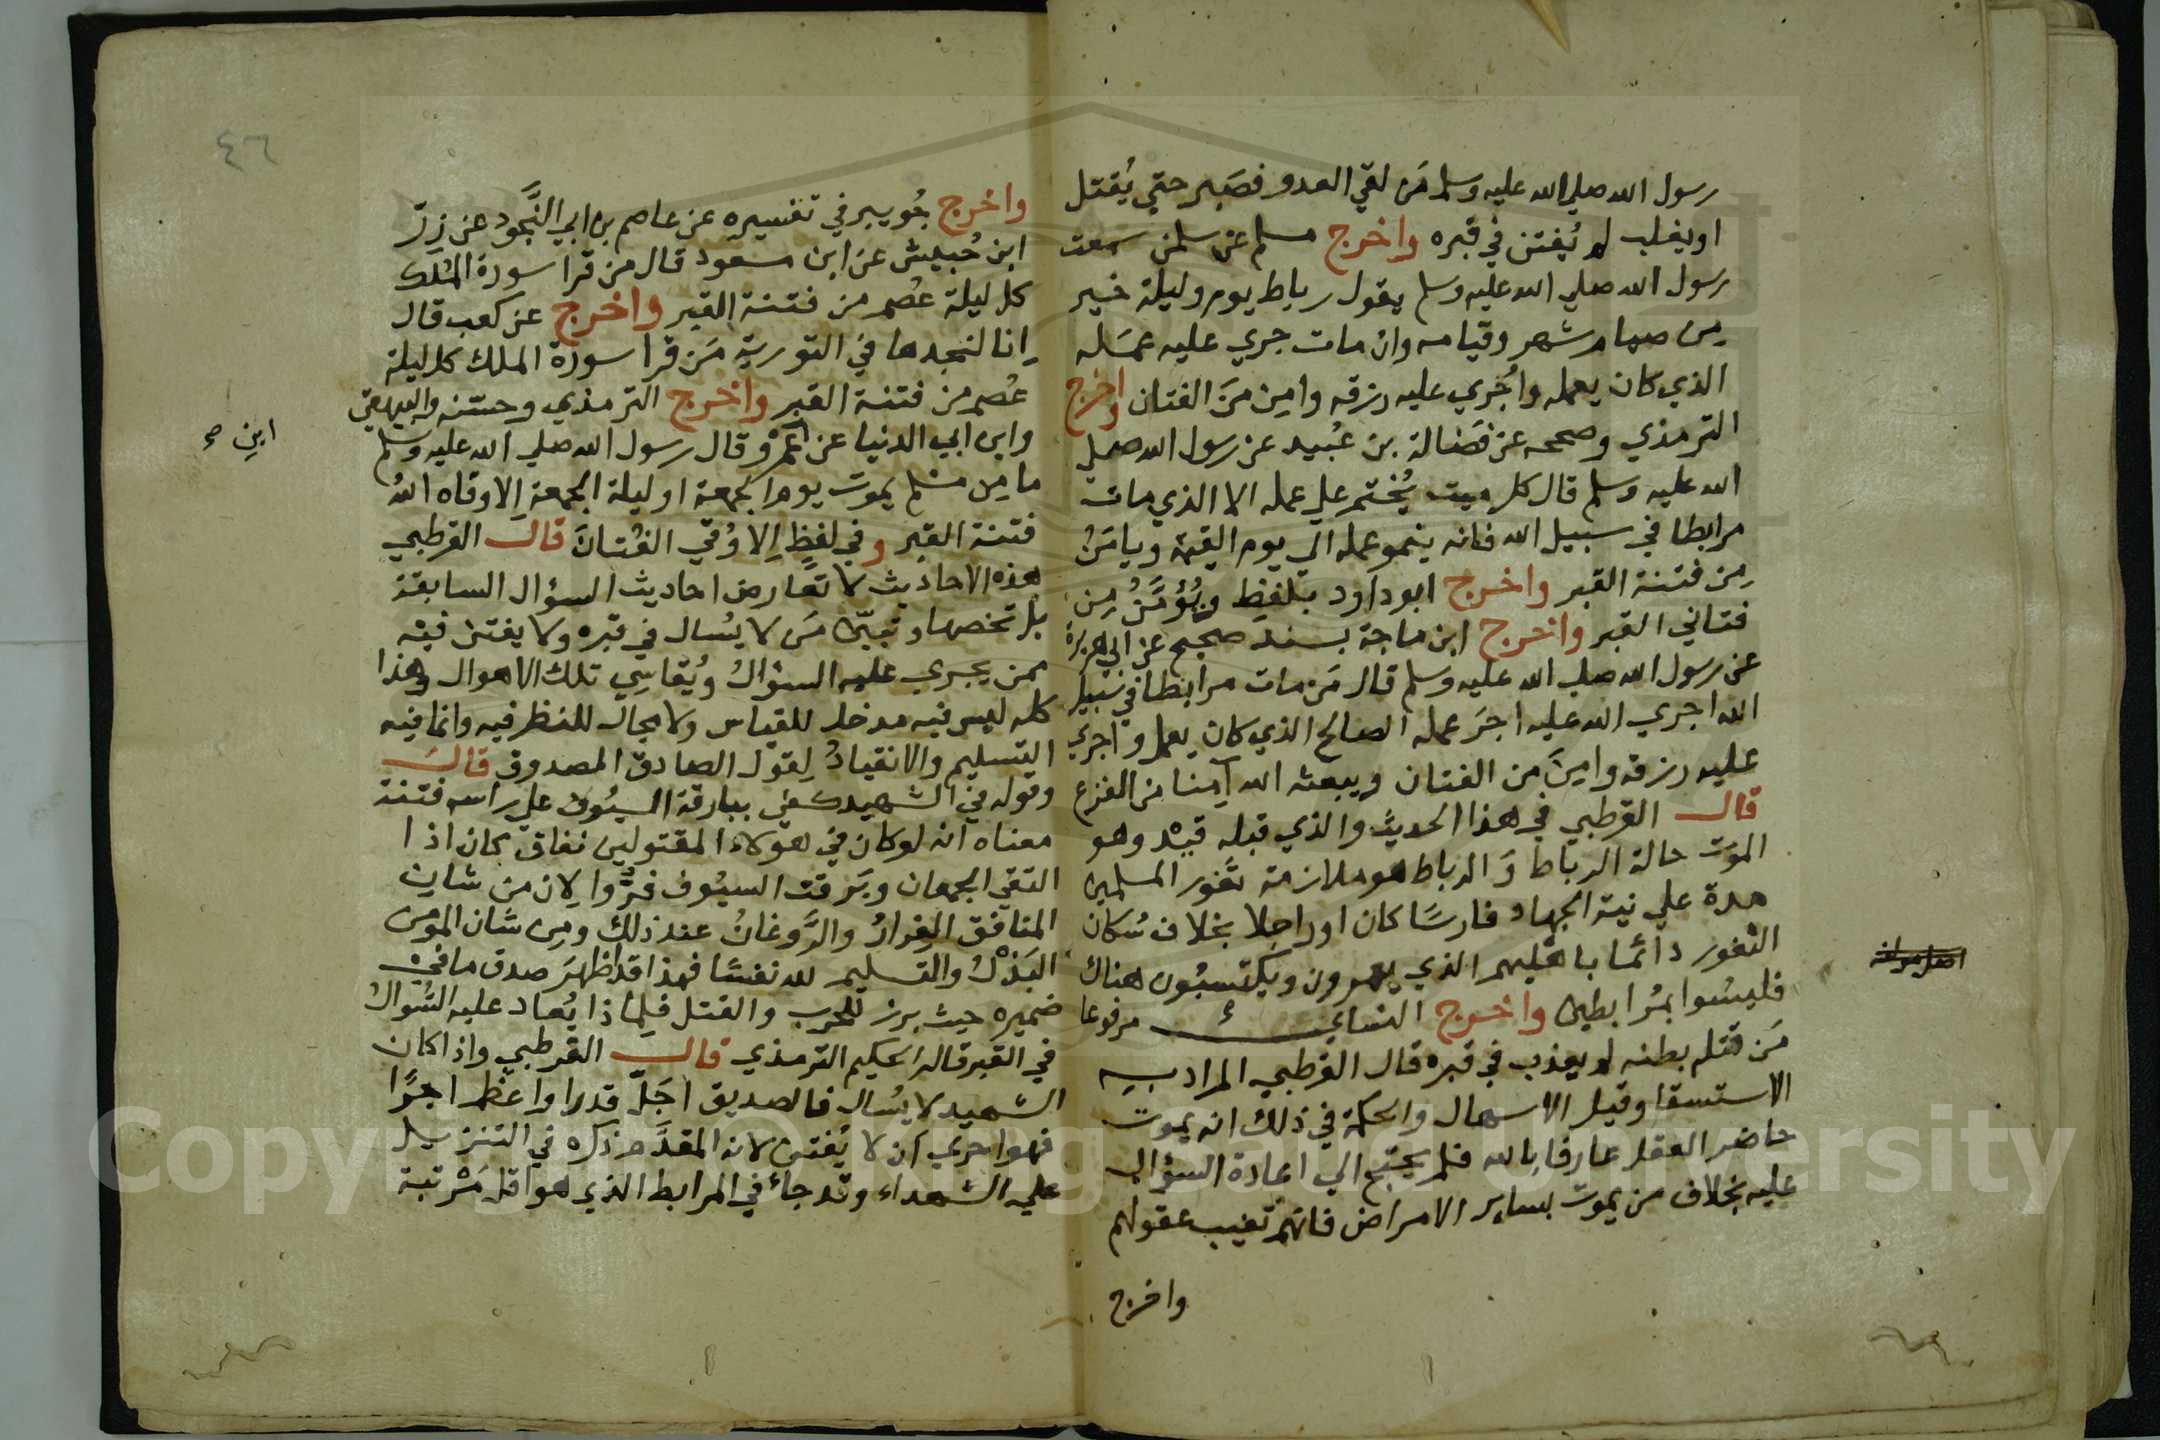 رسول الله صلي الله عليه وسلم مَن لقي العدو فصَبر حتي يُقتل
او يغلب لم يُفتن في قبره واخرج مسلم عن سلمن سمعت
رسول الله صلي الله عليه وسلم يقول رباط يوم وليلة خير
مِن صيام شهر وقيامه وان مات جري عليه عمَله
الذي كان يعمله واُجري عليه رزقه وامِن مَن الفتان واخرج
الترمذي وصححه عن فَضالة بن عُبيد عن رسول الله صلي
الله عليه وسلم قال كل ميت يُختم علي عمله الا الذي مات
مرابطا في سبيل الله فانه ينمو عمله الي يوم القيمة ويامَنُ
مِن فتنة القبر واخرج ابو داود بلفظِ ويُؤمَّنُ مِن
فتاني القبر واخرج ابن ماجة بسند صحيح عن ابي هريرة
عن رسول الله صلي الله عليه وسلم قال مَن مات مرابطا في سبيل
الله اجري الله عليه اجرَ عمله الصالح الذي كان يعمل واجري
عليه رزقه وامِنَ من الفتان ويبعثه الله آمِنا من الفزع
قال القرطبي في هذا الحديث والذي قبله قيْد وهو
الموت حالة الرباط وَالرباط هو ملازمة ثغور المسلمين
مدة علي نية الجهاد فارسًا كان او راجلا بخلاف سُكان
الثغور دائما باهليهم الذي يعمرون ويكتسبُون هناك
فليسُوا بمُرابطين واخرج النساي مرفوعا
مَن قتله بطنه لم يعذب في قبره قال القرطبي المراد به
الاستسقا وقيل الاسهال والحكمة في ذلك انه يموت
حاضر العقل عارفا بالله فلم يحتج الي اعادة السؤال
عليه بخلاف من يموت بساير الامراض فانهم تغيب عقولهم
واخرج
٤٦
واخرج جُويبر في تفسيره عن عاصم بن ابي النَّجود عن زِرّ
ابن حُبيش عن ابن مسعود قال من قرا سورة المُلك
كل ليلة عُصم من فتنة القبر واخرج عن كعب قال
انا لنجدها في التورية مَن قرا سورة الملك كل ليلة
عُصم من فتنة القبر واخرج الترمذي وحسّنه والبيهقي
وابن ابي الدنيا عن عَمْرو قال رسول الله صلي الله عليه وسلم
ابن
ما مِن مسْلم يموت يوم الجمعة او ليلة الجمعة اِلا وقاه اللهُ
فتنة القبر وفي لفظٍ اِلا وُقي الفتانَ قال القرطبي
هذه الاحاديث لا تعارض احاديث السؤال السابقة
بل تخصها وتبيّن مَن لا يُسال في قبره ولا يفتن فيه
ممن يجري عليه السؤالُ ويُقاسِي تلك الاهوال وهذا
كله ليس فيه مدخل للقياس ولا مجال للنظر فيه وانما فيه
التسليم والانقيادُ لِقول الصادق المصدوق قال
وقوله في الشهيد كفي ببارقة السيُوف علي راسه فتنة
معناه انه لو كان في هؤلاء المقتولين نفاق كان اذا
التقي الجمعان وبَرقت السيُوف فرُّوا لِان من شان
المنافق الفِرارُ والرَّوغانُ عند ذلك ومِن شان المومن
البَذْلُ والتسليم لله نفسًا فهذا قد اظهرَ صدق ما في
ضميره حيث برز للحرب والقتل فلِماذا يُعاد عليه السُوالُ
في القبر قاله الحكيم الترمذي قال القرطبي واذا كان
الشهيد لا يُسال فالصديق اجَلّ قدرا واعظم اجرًا
فهو احري ان لا يُفتن لانه المقدَّم ذكره في التنزيل
علي الشهداء وقد جاء في المرابط الذي هو اقل مَرْتبة
Copyright © King Saud University